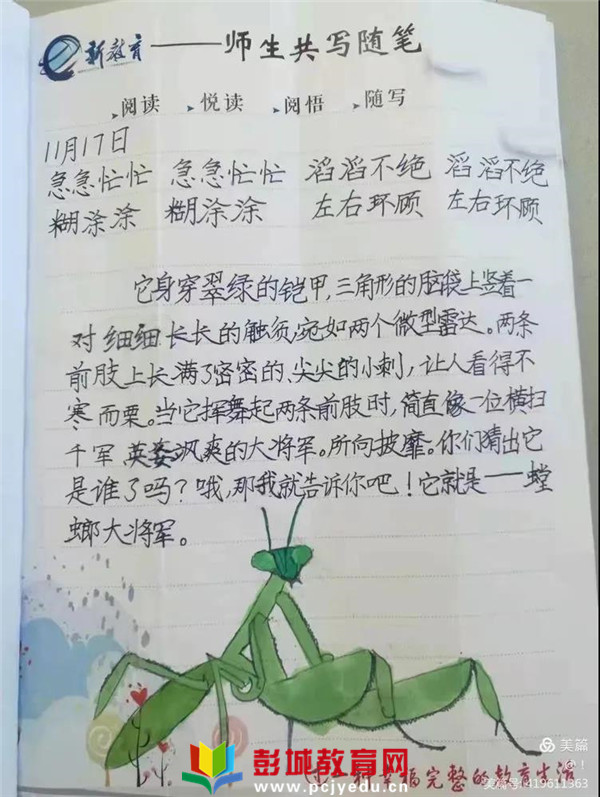 新教育——师生共写随笔
阅读 悦读 阅悟 随写
11月17日
急急忙忙 急急忙忙 滔滔不绝 滔滔不绝
糊涂涂 糊涂涂 左右环顾 左右环顾
它身穿翠绿的铠甲,三角形的脑袋上竖着一
对细细长长的触须,宛如两个微型雷达。两条
前肢上长满了密密的、尖尖的小刺,让人看得不
寒而栗。当它挥舞起两条前肢时,简直像一位横扫
千军英姿飒爽的大将军。所向披靡。你们猜出它
是谁了吗?哦,那我就告诉你吧!它就是——螳
螂大将军。
美篇
彭城教育网
完整的教育生活
www.pcjyedu.cn
美篇号:419611963